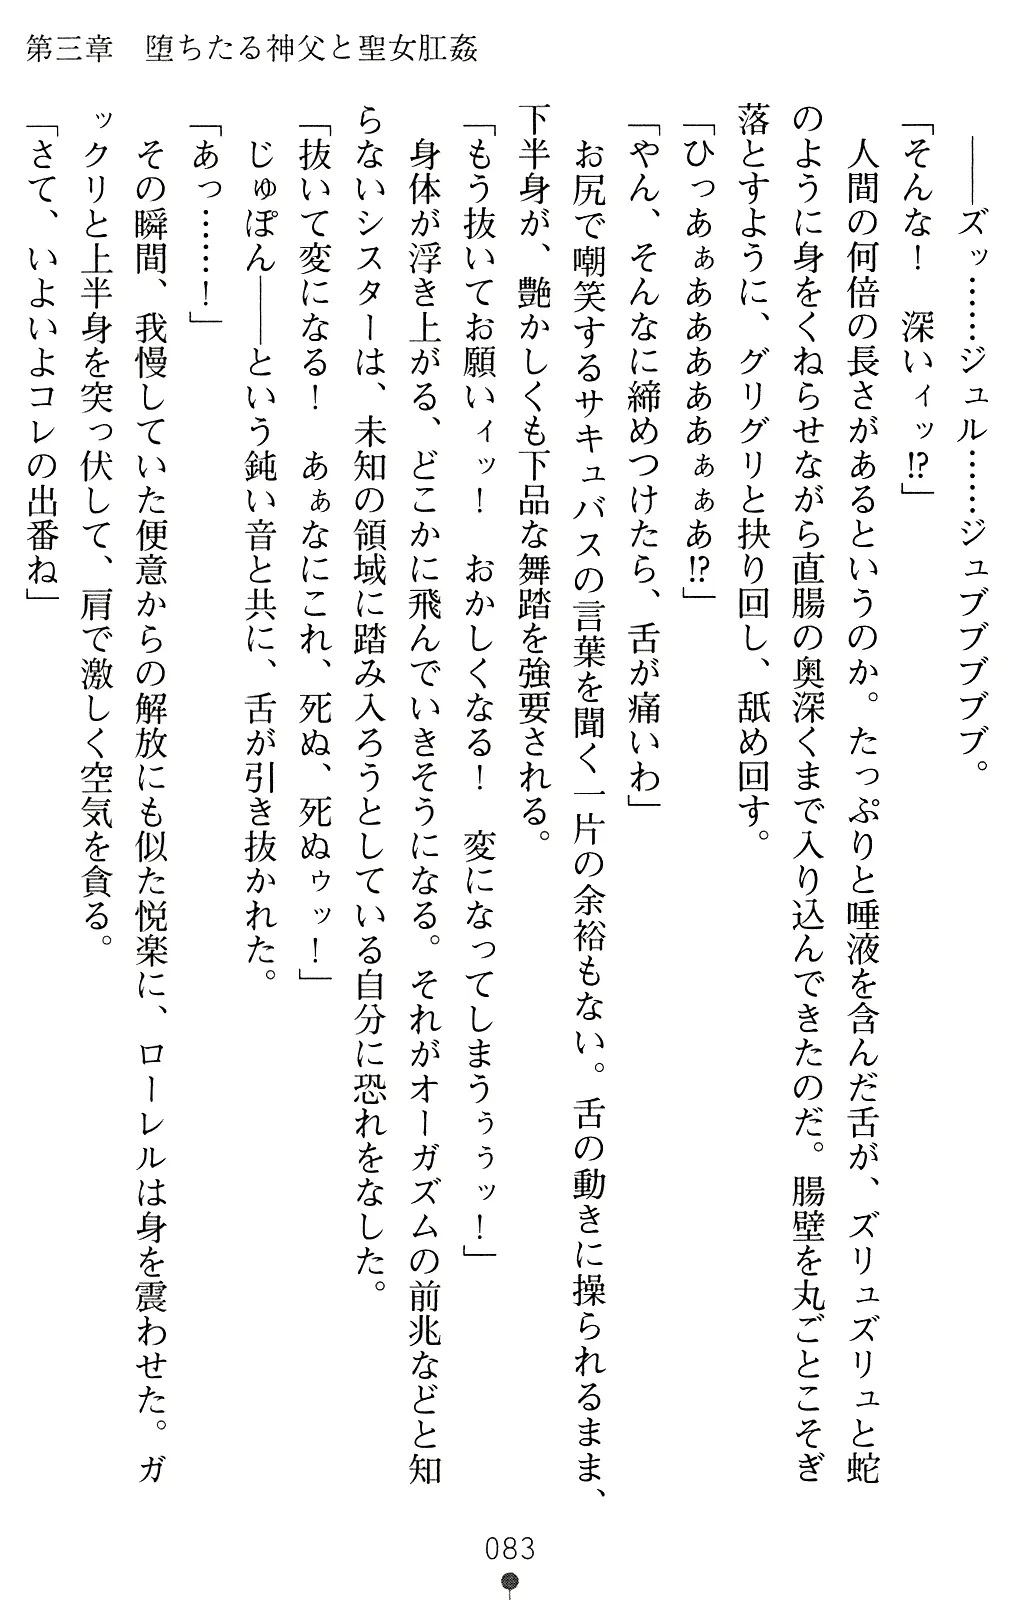 第三章　堕ちたる神父と聖女肛姦
――ズッ……ジュル……ジュブブブブブ。
「そんな！　深いィッ!?」
人間の何倍の長さがあるというのか。たっぷりと唾液を含んだ舌が、ズリュズリュと蛇
のように身をくねらせながら直腸の奥深くまで入り込んできたのだ。腸壁を丸ごとこそぎ
落とすように、グリグリと抉り回し、舐め回す。
「ひっあぁああああああぁぁあ!?」
「やん、そんなに締めつけたら、舌が痛いわ」
お尻で嘲笑するサキュバスの言葉を聞く一片の余裕もない。舌の動きに操られるまま、
下半身が、艶かしくも下品な舞踏を強要される。
「もう抜いてお願いィッ！　おかしくなる！　変になってしまうぅぅッ！」
身体が浮き上がる、どこかに飛んでいきそうになる。それがオーガズムの前兆などと知
らないシスターは、未知の領域に踏み入ろうとしている自分に恐れをなした。
「抜いて変になる！　あぁなにこれ、死ぬ、死ぬゥッ！」
じゅぽん――という鈍い音と共に、舌が引き抜かれた。
「あっ……！」
その瞬間、我慢していた便意からの解放にも似た悦楽に、ローレルは身を震わせた。ガ
ックリと上半身を突っ伏して、肩で激しく空気を貪る。
「さて、いよいよコレの出番ね」
083